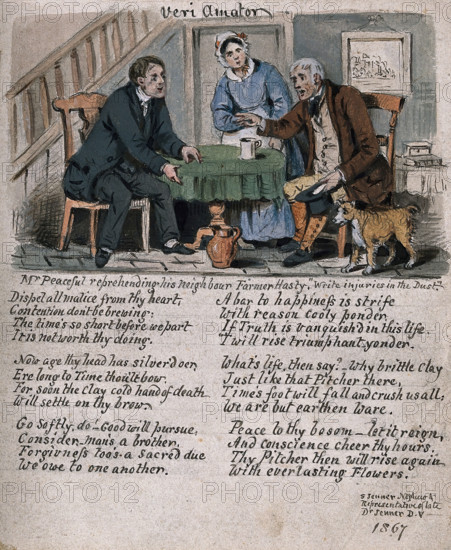 Veri Amator
Mr Peaceful reprehending his neighbour Farmer Hasty, "Write injuries in the Dust"
Dispel all malice from thy heart,
Contention dont be brewing:
The time's so short before we part
It is not worth thy doing.
Now age thy head has silver'd oer,
Ere long to Time thou'lt bow.
For soon the Clay cold hand of death
Will settle on thy brow.
Go Softly, do Good will pursue,
Consider man's a brother,
Forgivness too's a Sacred due
We owe to one another.
A bar to happiness is strife
With reason cooly ponder,
If Truth is vanquish'd in this life
T'will rise triumphant yonder.
What's life, then say? Why brittle Clay
Just like that Pitcher there,
Time's foot will fall and crush us all,
We are but earthen Ware.
Peace to thy bosom let it reign,
And conscience cheer thy hours.
Thy Pitcher then will rise again
With everlasting Flowers.
S Jenner Nephew &
Representative of late
Dr Jenner D.V
1867
PHOTO12